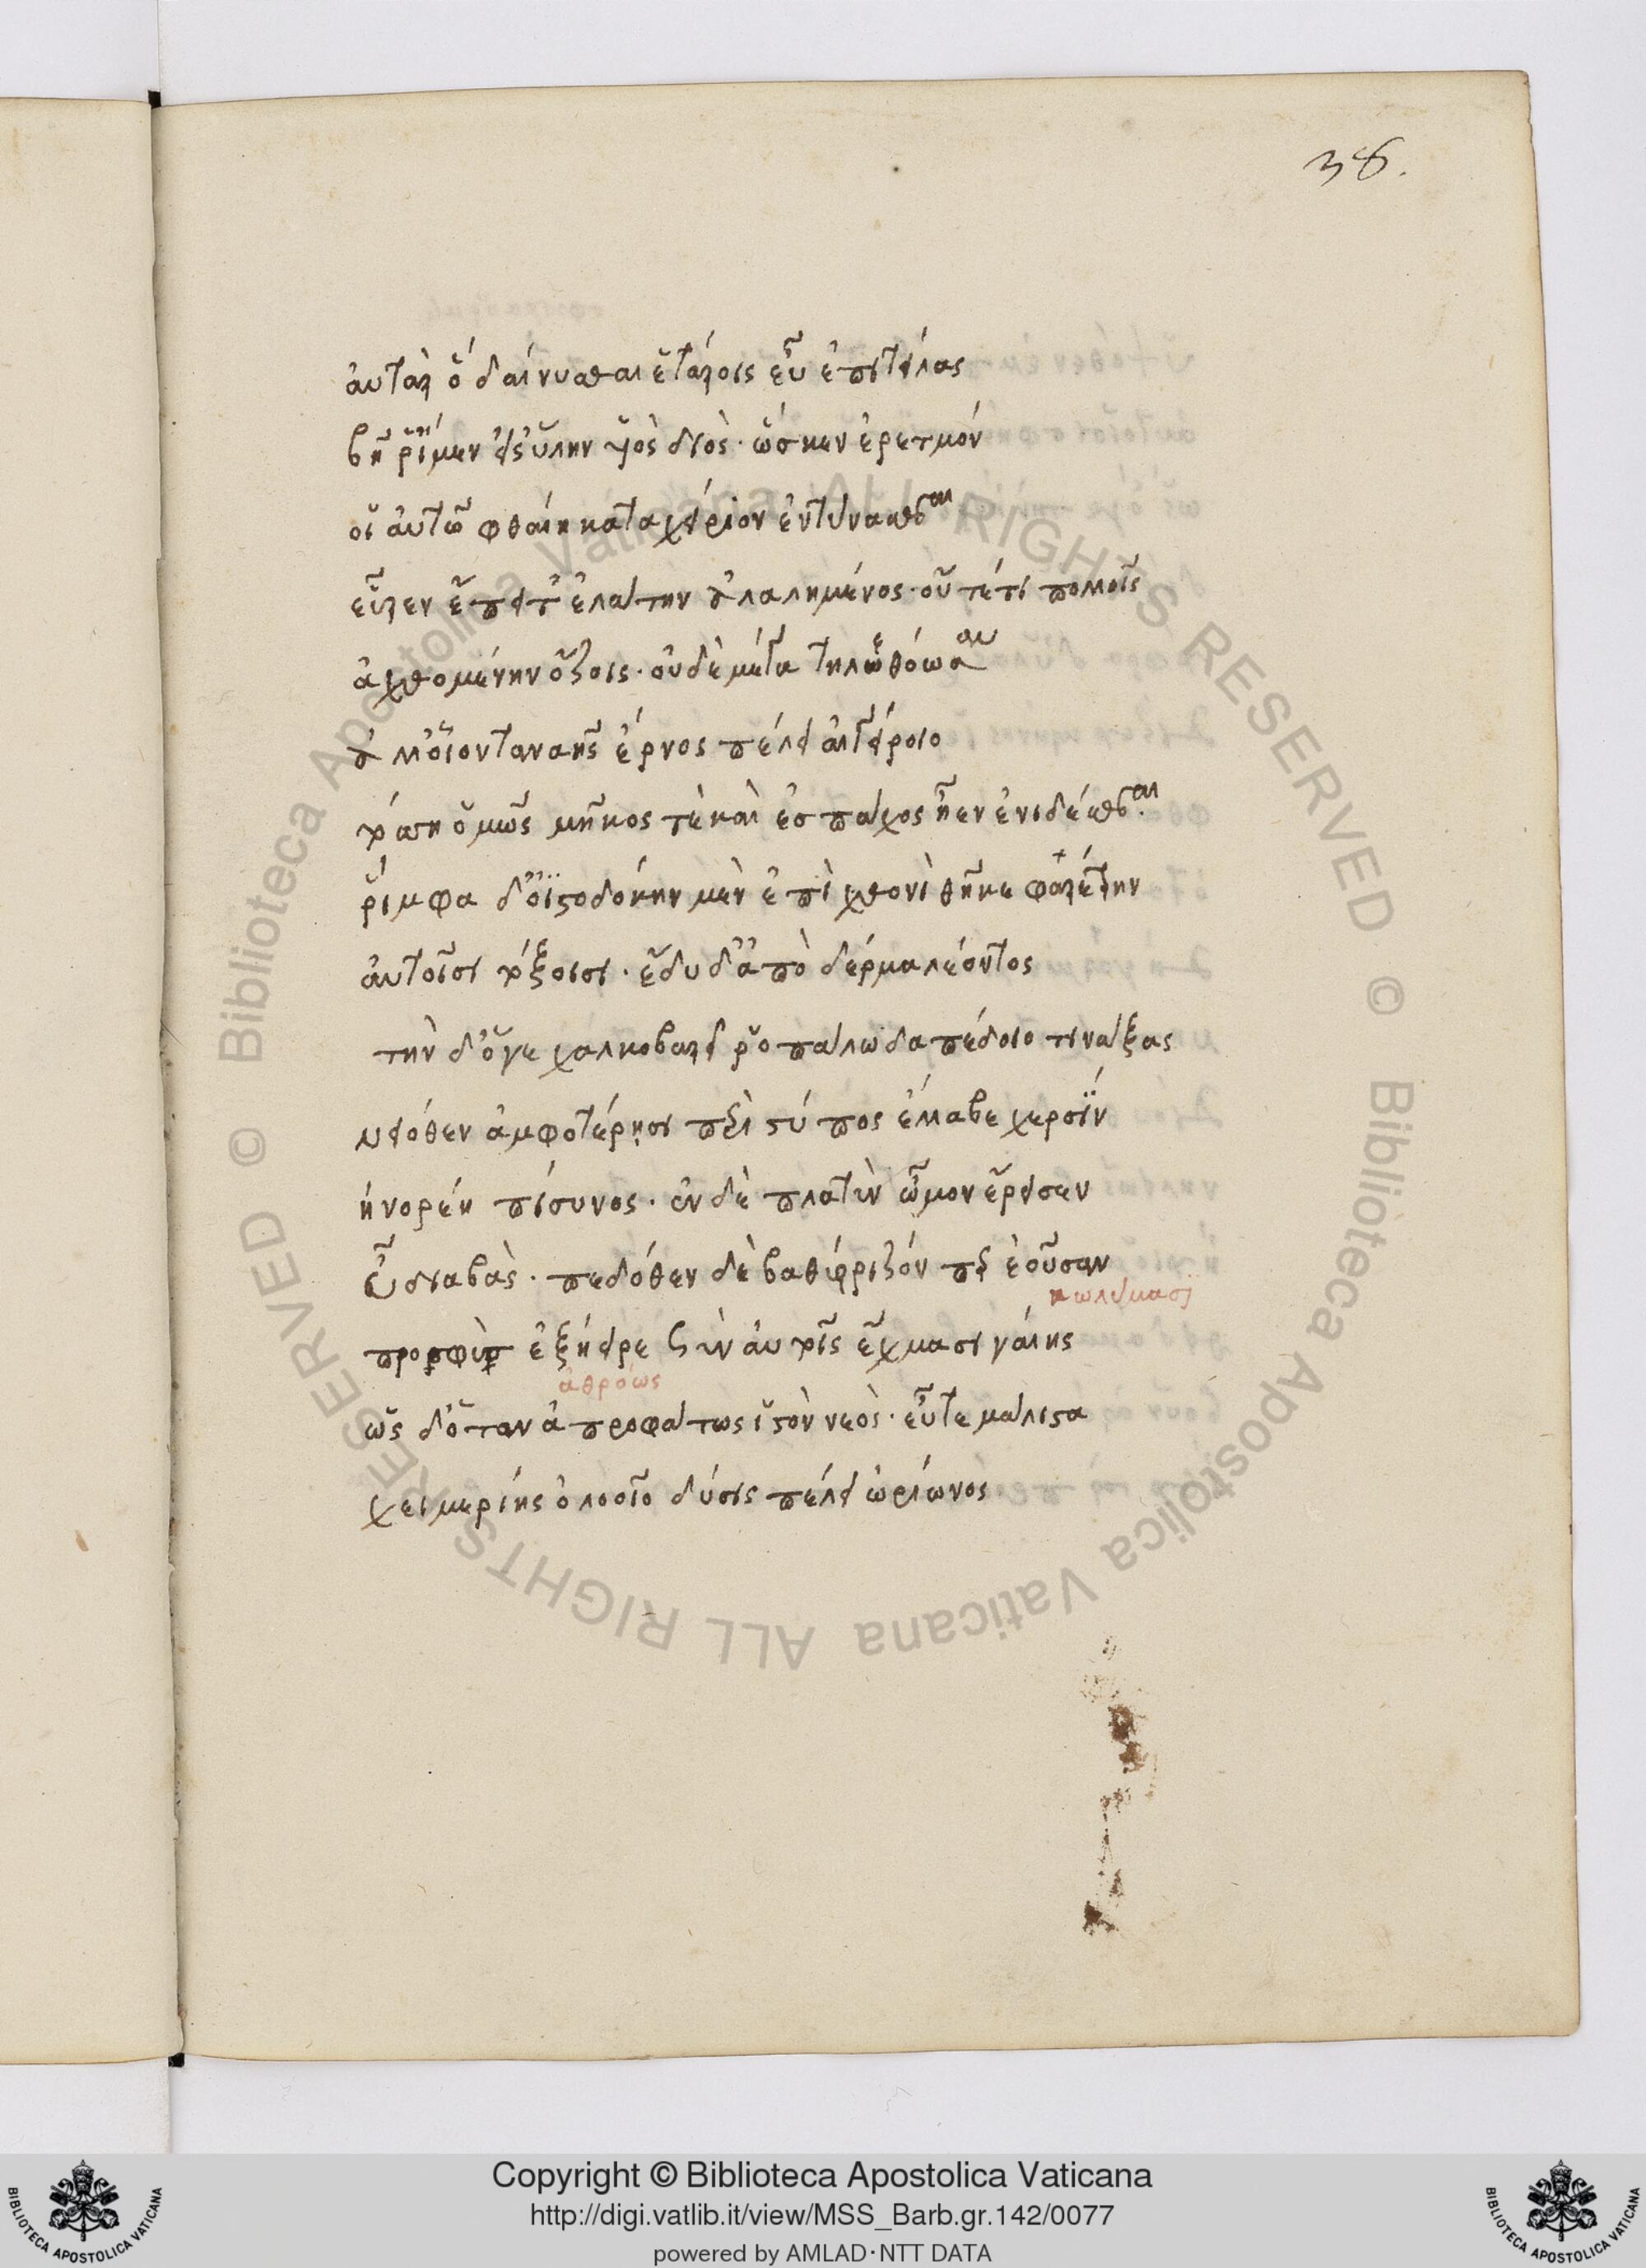 38.
αὐτὰρ ὁ δαίνυσθαι ἑτάροις εὖ ἐπιτείλας
βῆ ῥ' ἴμεν εἰς ὕλην υἱὸς διὸς· ὥς κεν ἐρετμόν
οἷ αὐτῶ φθαίη καταχείριον ἐντύνασθαι
εὗρεν ἔπειτ' ἐλάτην ἀλαλημένος· οὔτέ τι πολλοῖς
ἀχθομένην ὄζοις· οὐδὲ μέγα τηλεθόωσαν
ἀλλ' οἷον ταναῆς ἔρνος πέλει αἰγείροιο
τάση ὁμῶς μῆκος τὲ καὶ ἐσ πάχος ἦεν ἐνιδέσθαι.
ῥίμφα δ' ὀϊστοδόκην μὲν ἐπὶ χθονὶ θῆκε φαρέτρην
αὐτοῖσι τόξοισι· ἔδυ δ' ἀπὸ δέρμα λέοντος
τὴν δ' ὅγε χαλκοβαρεῖ ῥοπάλω δαπέδοιο τινάξας
νειόθεν ἀμφοτέρῃσι περὶ στύπος ἔλλαβε χερσϊν
ἠνορέη πίσυνος· ἐν δὲ πλατὺν ὦμον ἔρεισεν
εὖ διαβὰς· πεδόθεν δὲ βαθύρριζόν περ ἐοῦσαν
κωλύμασι
προσφὺς ἐξήειρε σὺν αὐτοῖς ἔχμασι γαίης
ἀθρόως
ὡς δ' ὅταν ἀπροφάτως ἱστὸν νεὸς· εὖτε μάλιστα
χειμερίης ὀλοοῖο δύσις πέλει ὠρίωνος
Copyright © Biblioteca Apostolica Vaticana
http://digi.vatlib.it/view/MSS_Barb.gr.142/0077
powered by AMLAD·NTT DATA
BIBLIOTECA APOSTOLICA VATICANA
BIBLIOTECA APOSTOLICA VATICANA
© Biblioteca Apostolica Vaticana ALL RIGHTS RESERVED
© Biblioteca Apostolica Vaticana ALL RIGHTS RESERVED